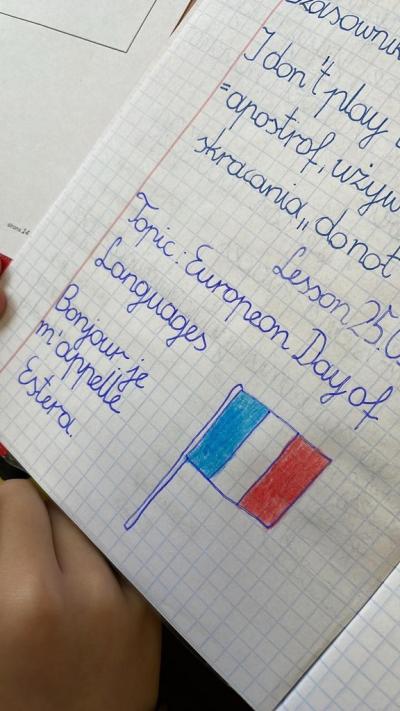 I don't play
= apostrof, używ
skracania,, do not
Lesson 25.0
Topic: European Day of
Languages
Bonjour je
m'appelle
Estera.
strona 24